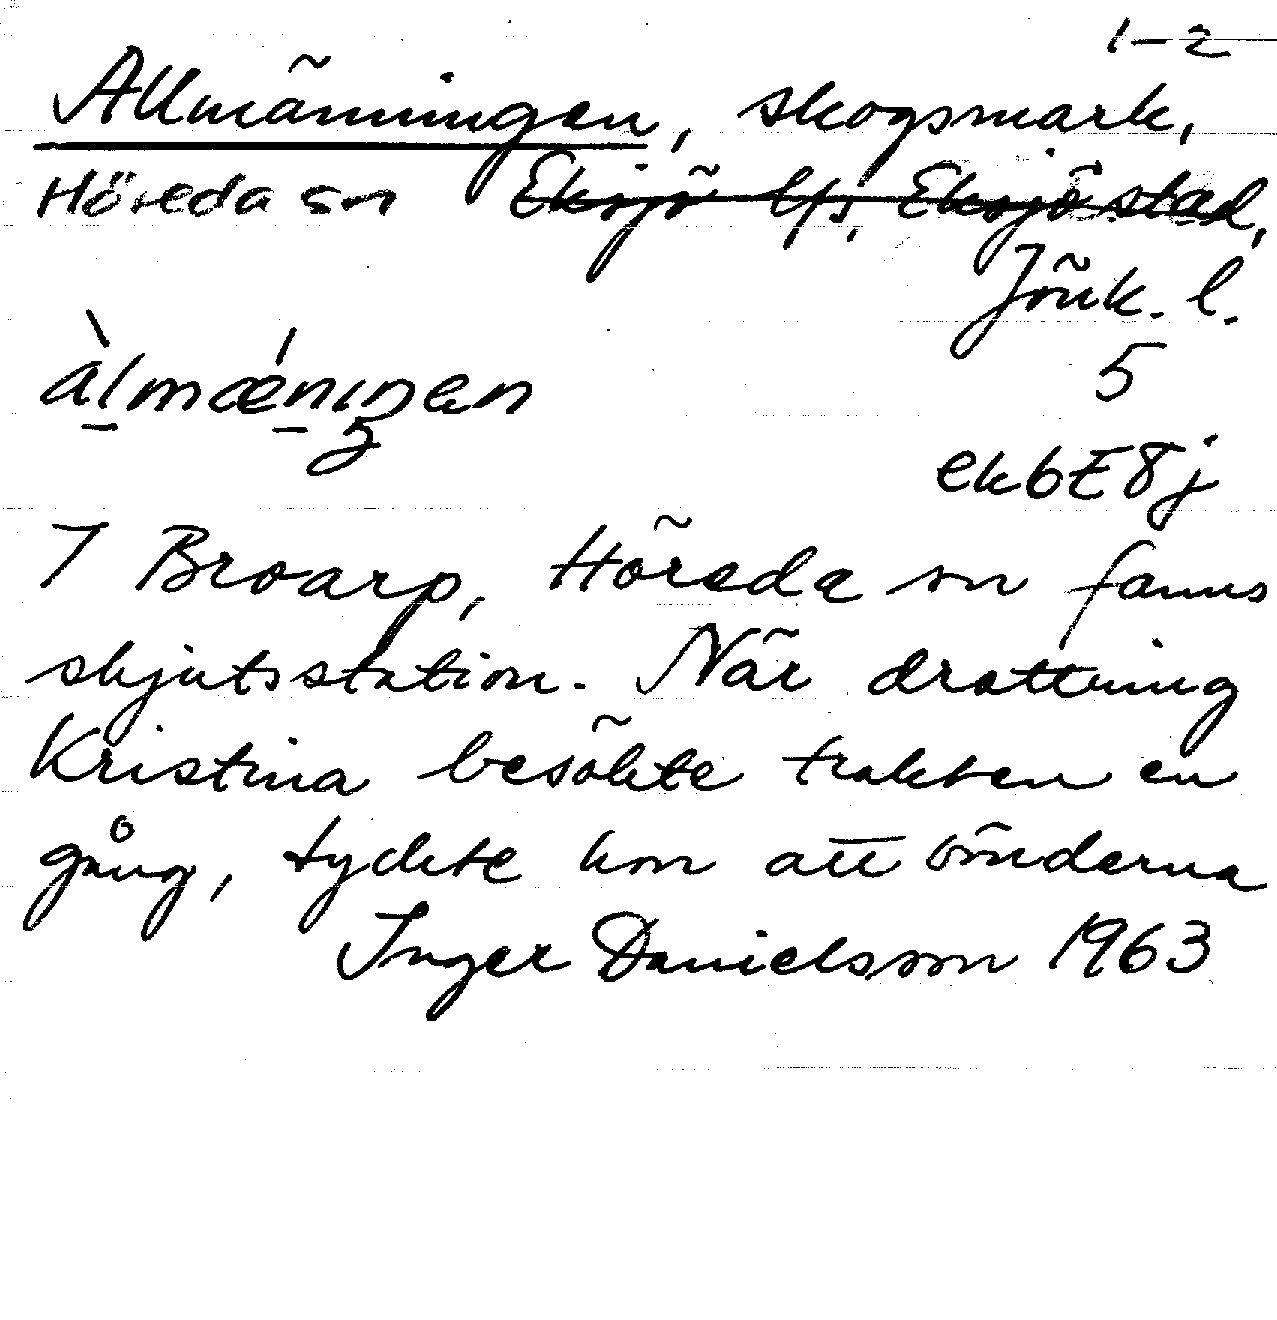 1-2
Allmänningen, skogsmark,
Höreda sn Eksjö lfs. Eksjö stad,
Jönk. l.
5
ek6E8j
I Broarp, Höreda sn fanns
skjutsstation. När drottning
Kristina besökte trakten en
gång, tyckte hon att bönderna
Inger Danielsson 1963